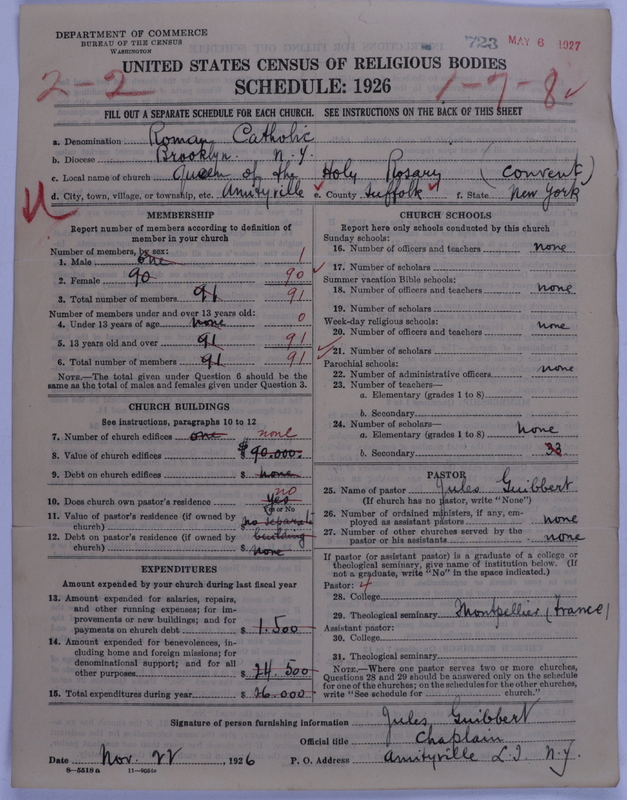 DEPARTMENT OF COMMERCE
BUREAU OF THE CENSUS
WASHINGTON
723 MAY 6 1927
UNITED STATES CENSUS OF RELIGIOUS BODIES
2-2 SCHEDULE: 1926 1-7-8
FILL OUT A SEPARATE SCHEDULE FOR EACH CHURCH. SEE INSTRUCTIONS ON THE BACK OF THIS SHEET
a. Denomination Roman Catholic
b. Diocese Brooklyn. N.Y.
c. Local name of church Queen of the Holy Rosary (Convent)
d. City, town, village, or township, etc. Amityville e. County Suffolk f. State New York
MEMBERSHIP
Report number of members according to definition of
member in your church
Number of members, by sex:
1. Male one 1
2. Female 90 90
3. Total number of members 91 91
Number of members under and over 13 years old:
4. Under 13 years of age none 0
5. 13 years old and over 91 91
6. Total number of members 91 91
NOTE.—The total given under Question 6 should be
the same as the total of males and females given under Question 3.
CHURCH BUILDINGS
See instructions, paragraphs 10 to 12
7. Number of church edifices one none
8. Value of church edifices $ 90.000.
9. Debt on church edifices $ none
10. Does church own pastor's residence yes no
Yes or No
11. Value of pastor's residence (if owned by
church) no separate
12. Debt on pastor's residence (if owned by building
church) none
EXPENDITURES
Amount expended by your church during last fiscal year
13. Amount expended for salaries, repairs,
and other running expenses; for im-
provements or new buildings; and for
payments on church debt $ 1.500
14. Amount expended for benevolences, in-
cluding home and foreign missions; for
denominational support; and for all
other purposes $ 24.500
15. Total expenditures during year $ 26.000
CHURCH SCHOOLS
Report here only schools conducted by this church
Sunday schools:
16. Number of officers and teachers none
17. Number of scholars
Summer vacation Bible schools:
18. Number of officers and teachers none
19. Number of scholars
Week-day religious schools:
20. Number of officers and teachers none
21. Number of scholars
Parochial schools:
22. Number of administrative officers none
23. Number of teachers—
a. Elementary (grades 1 to 8)
b. Secondary
24. Number of scholars—
a. Elementary (grades 1 to 8) none
b. Secondary 33
PASTOR
25. Name of pastor Jules Guibbert
(If church has no pastor, write "None")
26. Number of ordained ministers, if any, em-
ployed as assistant pastors none
27. Number of other churches served by the
pastor or his assistants none
If pastor (or assistant pastor) is a graduate of a college or
theological seminary, give name of institution below. (If
not a graduate, write "No" in the space indicated.)
Pastor: 4
28. College
29. Theological seminary Montpellier (France)
Assistant pastor:
30. College
31. Theological seminary
NOTE.—Where one pastor serves two or more churches,
Questions 28 and 29 should be answered only on the schedule
for one of the churches; on the schedules for the other churches,
write "See schedule for church."
Signature of person furnishing information Jules Guibbert
Official title Chaplain
Date Nov. 22, 1926 P. O. Address Amityville L.I. N.Y.
8—5518 a